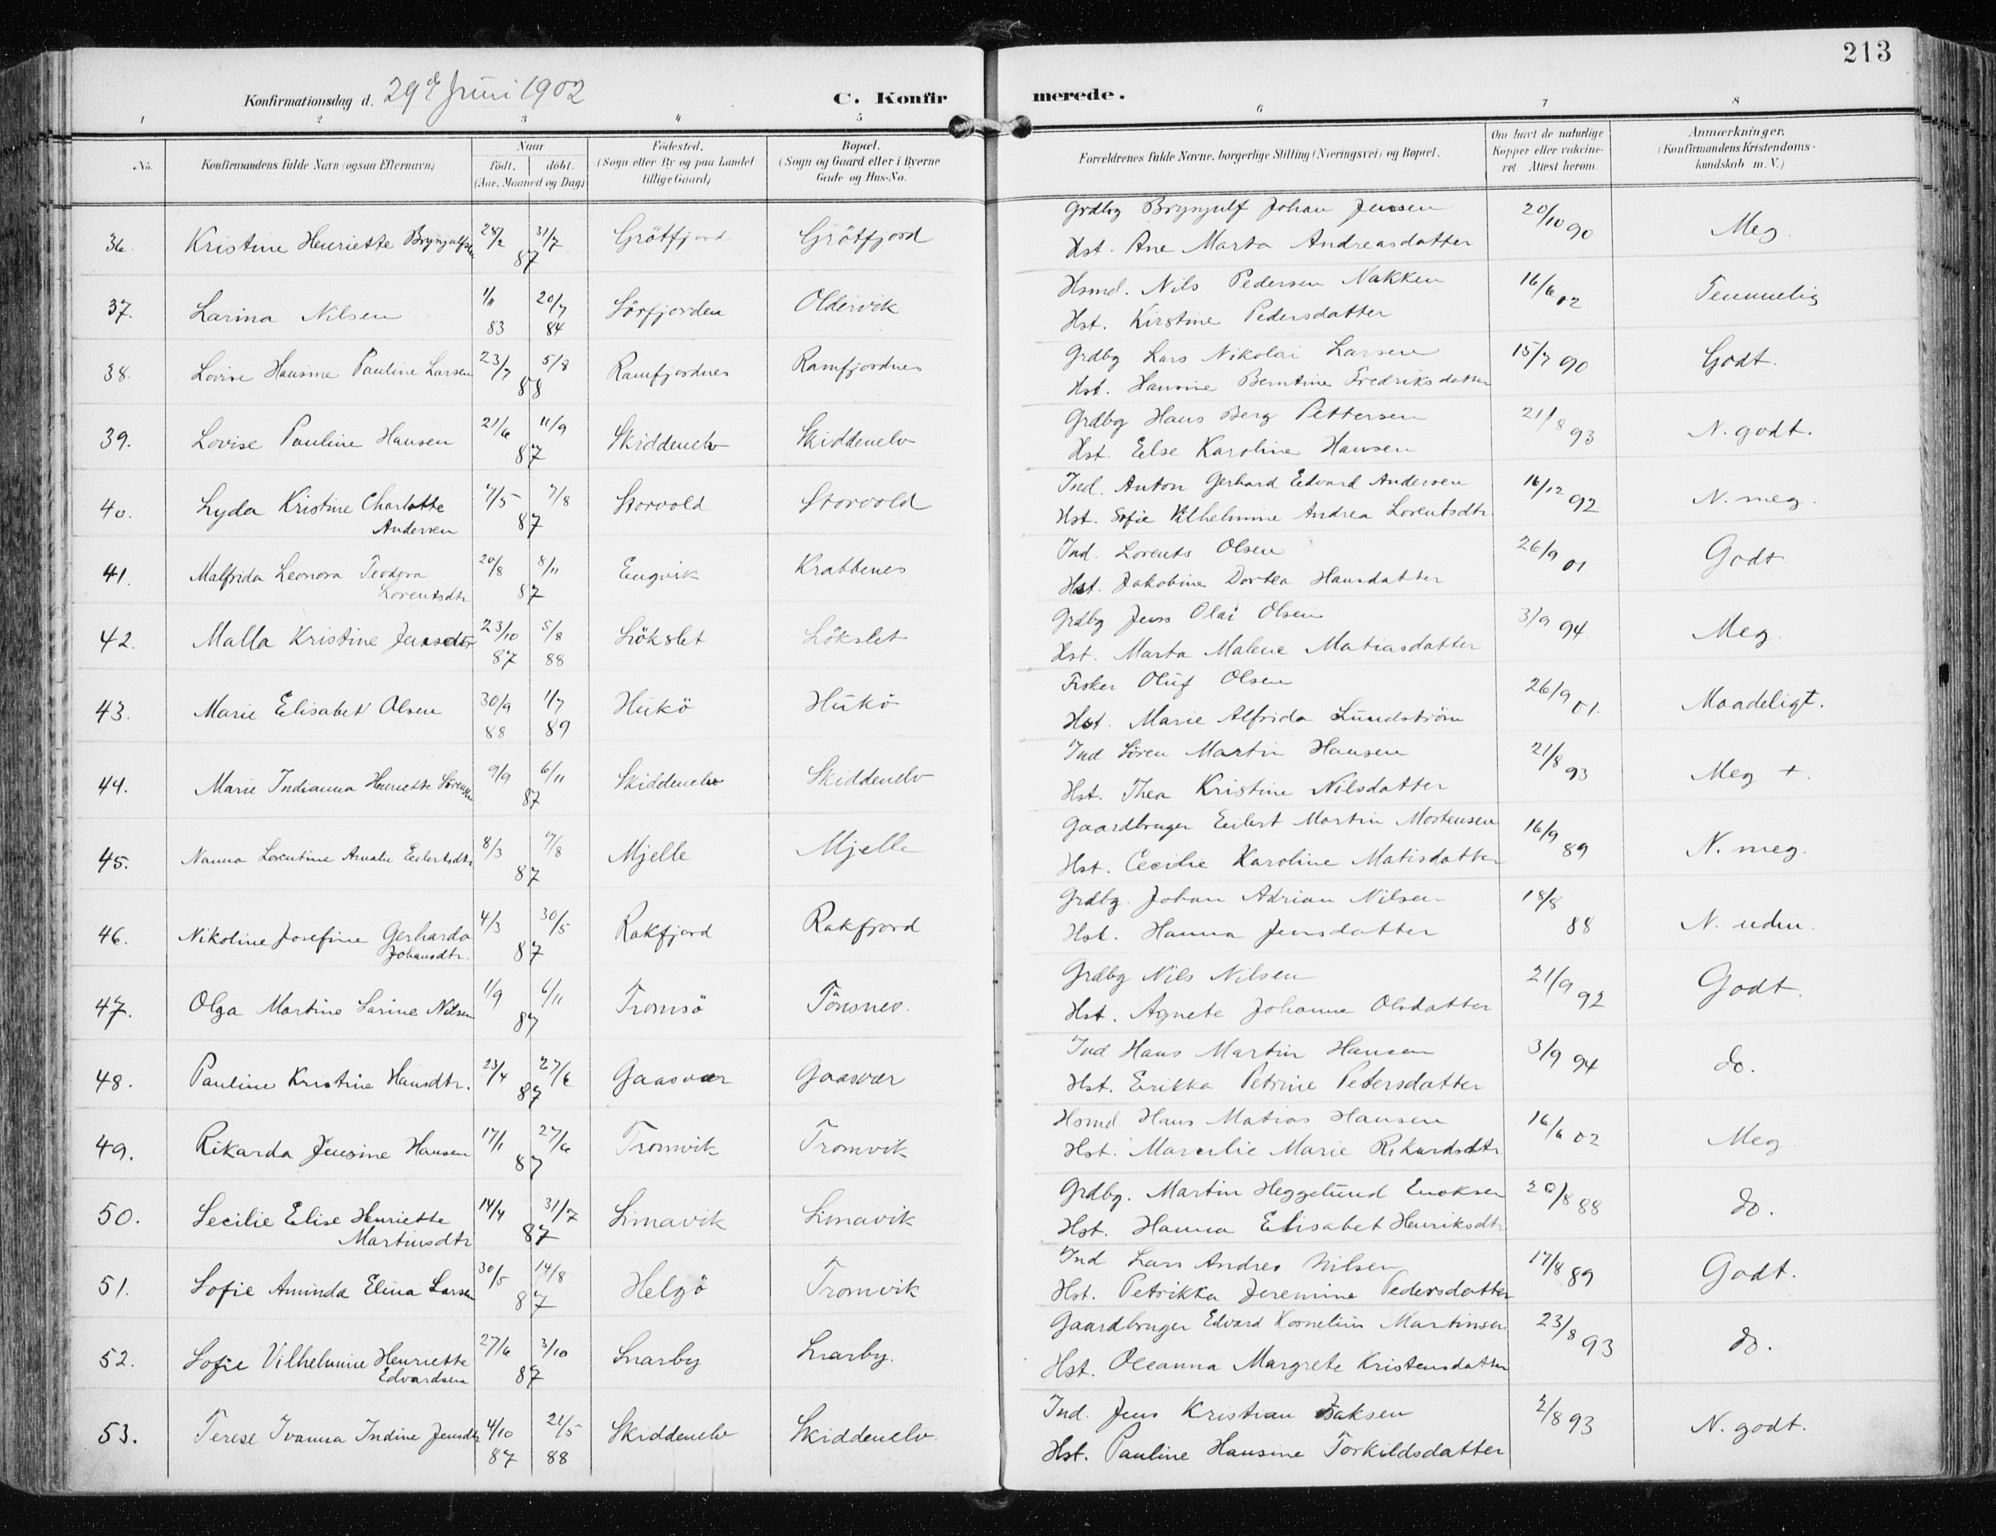 213
Konfirmationsdag d. 29de Juni 1902
C. Konfir merede.
1 2 3 4 5 6 7 8
No. Konfirmandens fulde Navn (ogsaa Efternavn) Naar født. døbt. (Aar, Maaned og Dag) Fødested. (Sogn eller By og paa Landet tillige Gaard) Bopæl. (Sogn og Gaard eller i Byerne Gade og Hus-No. Forældrenes fulde Navne, borgerlige Stilling (Næringsvei) og Bopæl. Om havt de naturlige Kopper eller vakcineret Attest herom. Anmærkninger. (Konfirmandens Kristendomskundskab m. V.)
Grdbg Brynjulf Johan Jensen
36. Kristine Henriette 28/2 31/7 87 Grötfjord Grötfjord Hst. Ane Marta Andreasdatter 20/10 90 Meg.
Hsmd. Nils Pedersen Nakken
37. Larina Nilsen 1/11 83 20/7 84 Sörfjorden Oldervik Hst. Kirstine Pedersdatter 16/6 02 Temmelig
Grdbg Lars Nikolai Larsen
38. Lovise Hansine Pauline Larsen 23/7 5/8 88 Ramfjordnes Ramfjordnes Hst. Hansine Berntine Fredriksdatter 15/7 90 Godt.
Grdbg Hans Berg Pettersen
39. Lovise Pauline Hansen 21/6 11/9 87 Skiddenelv Skiddenelv Hst. Else Karoline Hansen 21/8 93 N. godt.
Ind. Anton Gerhard Edvard Andersen
40. Lyda Kristine Charlotte 7/5 7/8 87 Storvold Storvold Hst. Sofie Vilhelmine Andrea Lorentsdtr. 16/12 92 N. meg.
Andersen
Ind. Lorents Olsen
41. Malfrida Leonora Teodora 20/8 8/11 87 Engvik Krabbenes Hst. Jakobine Dortea Hansdatter 26/9 01 Godt
Lorentsdtr.
Grdbg. Jens Olai Olsen
42. Malla Kristine Jensdtr 23/10 87 5/8 88 Lökslet Lökslet Hst. Marta Malene Matiasdatter 3/9 94. Meg.
Fisker Oluf Olsen
43. Marie Elisabet Olsen 30/9 88 1/7 89 Hükö Hükö Hst. Marie Alfrida Lundström 26/9 01. Maadeligt.
Ind Sören Martin Hansen
44. Marie Indianna Henriette 9/9 6/11 87 Skiddenelv Skiddenelv Hst. Thea Kristine Nilsdatter 21/8 93 Meg +.
Gaardbruger Eilert Martin Mortensen
45. Nanna Lorentine Amalie Eilertsdtr 8/3 7/8 87 Mjelle Mjelle Hst. Cecilie Karoline Matisdatter 16/9 89 N. meg.
Grdbg. Johan Adrian Nilsen
46. Nikoline Josefine Gerharda 4/3 30/5 87 Rakfjord Rakfjord Hst. Hanna Jensdatter 18/8 88 N. udm.
Johansdtr.
Grdbg Nils Nilsen
47. Olga Martine Larine Nilsen 1/9 6/11 87 Tromsö Tönsnes. Hst. Agnete Johanne Olsdatter 21/9 92 Godt.
Ind Hans Martin Hansen
48. Pauline Kristine Hansdtr. 23/4 27/6 87 Gaasvær Gaasvær Hst. Erikka Petrine Pedersdatter 3/9 94 do.
Hsmd. Hans Matias Hansen
49. Rikarda Jensine Hansen 17/1 27/6 87 Tromvik Tromvik Hst. Marselie Marie Rikardsdtr 16/6 02 Meg
Grdbg. Martin Heggelund Enoksen
50. Secilie Elise Henriette 14/4 31/7 87 Simavik Simavik Hst. Hanna Elisabet Henriksdtr 20/8 88 do.
Martinsdtr
Ind Lars Andreas Nilsen
51. Sofie Aminda Elina Larsen 30/5 14/8 87 Helgö Tromvik Hst. Petrikka Jeremine Pedersdatter 17/8 89 Godt.
Gaardbruger Edvard Kornelius Martinsen
52. Sofie Vilhelmine Henriette 27/6 3/10 87 Snarby Snarby. Hst. Oleanna Margrete Kristensdatter 23/8 93 do.
Edvardsen
Ind. Jens Kristian Isaksen
53. Terese Ivanna Indine Jensdtr 4/10 87 21/5 88 Skiddenelv Skiddenelv. Hst. Pauline Hansine Torkildsdatter 2/8 93 N. godt.